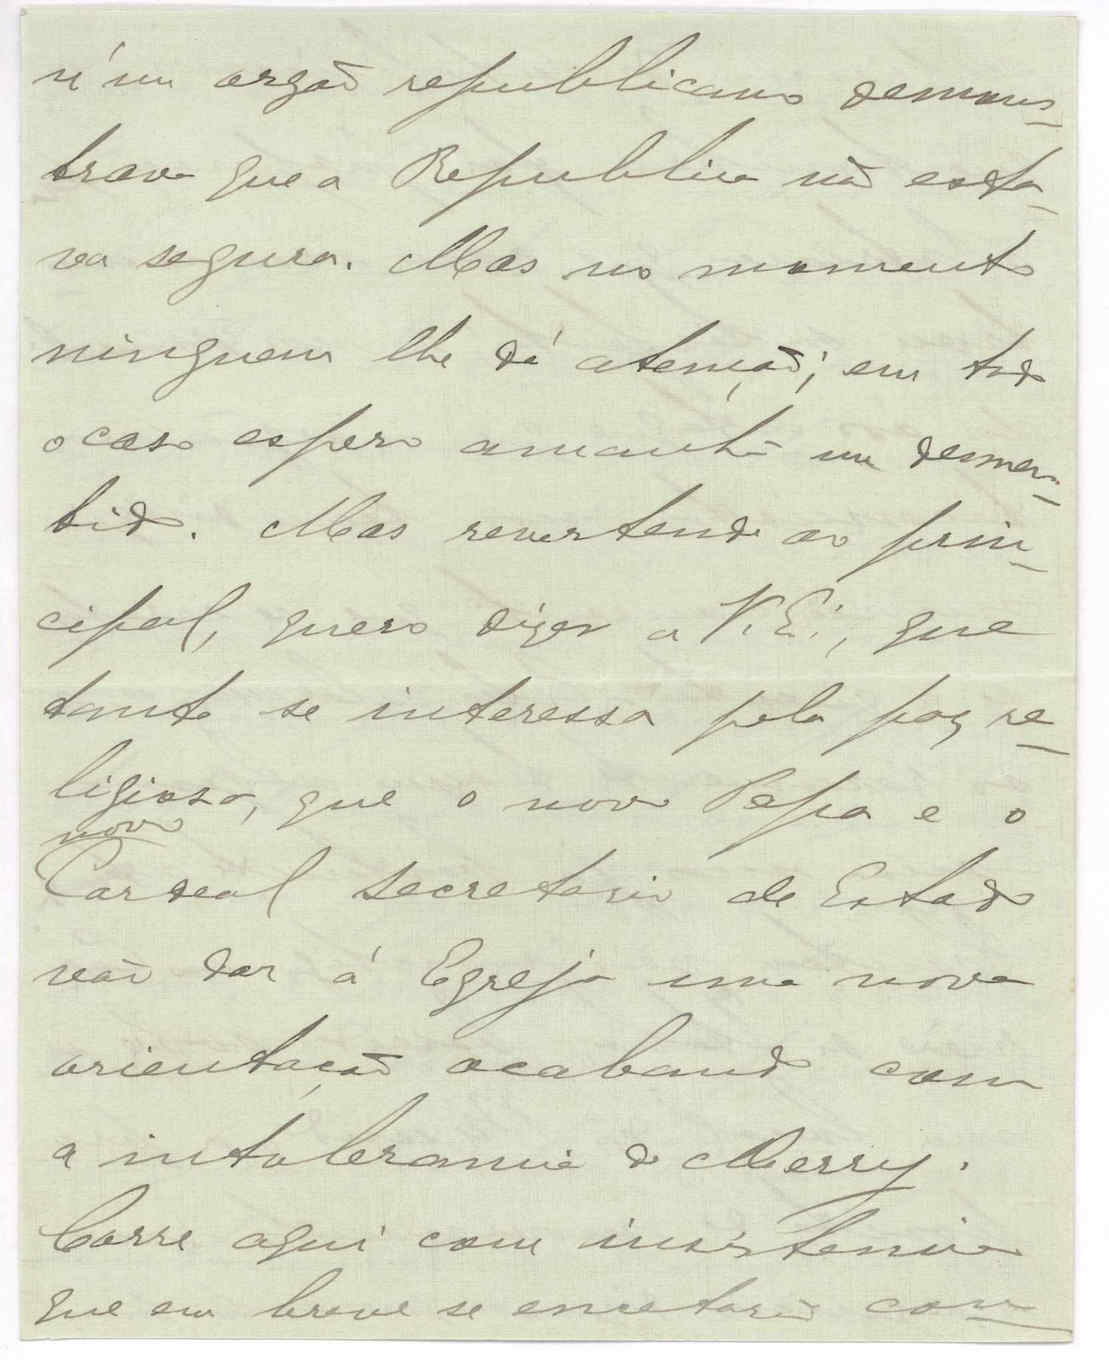 n'um orgão republicano demons-
trava que a Republica não esta-
va segura. Mas no momento
ninguem lhe dá atenção; em todo
o caso espero amanhã um desmen-
tido. Mas revertendo ao prin-
cipal, quero dizer a V. Ex., que
tanto se interessa pela paz re-
ligiosa, que o novo Papa e o
novo
Cardeal secretario de Estado
vão dar á Egreja uma nova
orientação acabando com
a intolerancia do Merry.
Corre aqui com insistencia
que em breve se encetarão con-